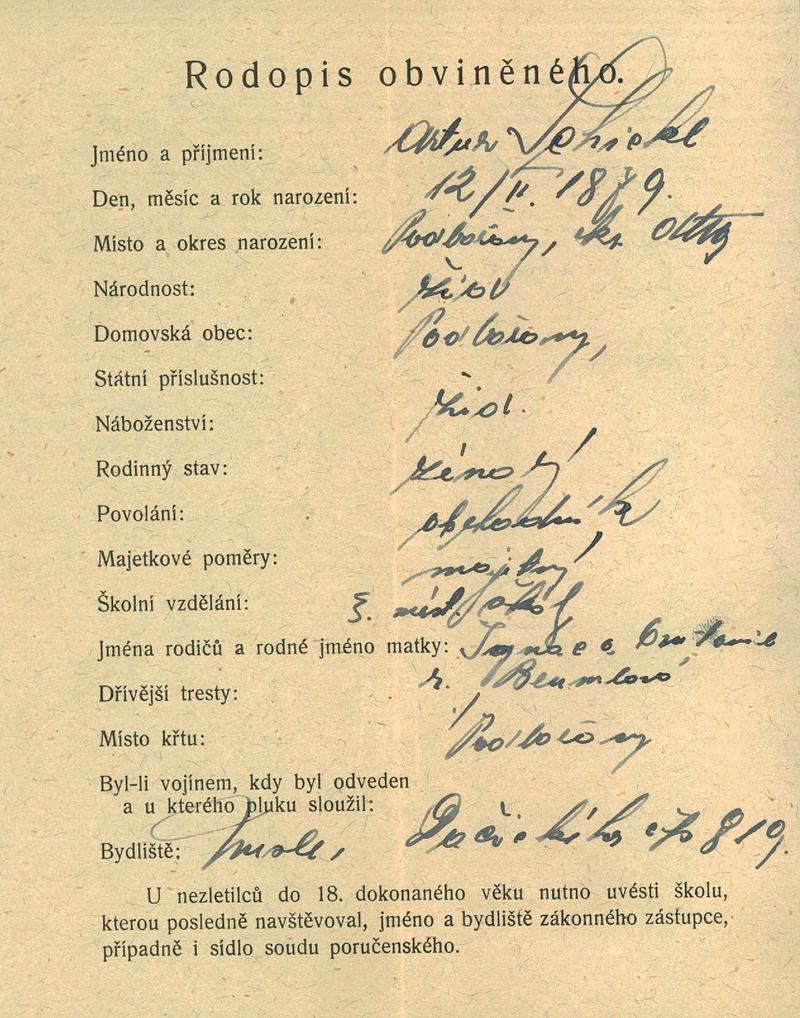 Rodopis obviněného.
Jméno a příjmení: Artur Schickl
Den, měsíc a rok narození: 12/II. 1879.
Místo a okres narození: Podbořany,
Národnost: žid
Domovská obec: Podbořany,
Státní příslušnost:
Náboženství: žid.
Rodinný stav: ženatý
Povolání: obchodník
Majetkové poměry: majetný
Školní vzdělání: měšť. škol
Jména rodičů a rodné jméno matky: Ignác a
r.
Dřívější tresty:
Místo křtu: Podbořany
Byl-li vojínem, kdy byl odveden
a u kterého pluku sloužil:
Bydliště: Dačického čp 819.
U nezletilců do 18. dokonaného věku nutno uvésti školu,
kterou posledně navštěvoval, jméno a bydliště zákonného zástupce,
případně i sídlo soudu poručenského.